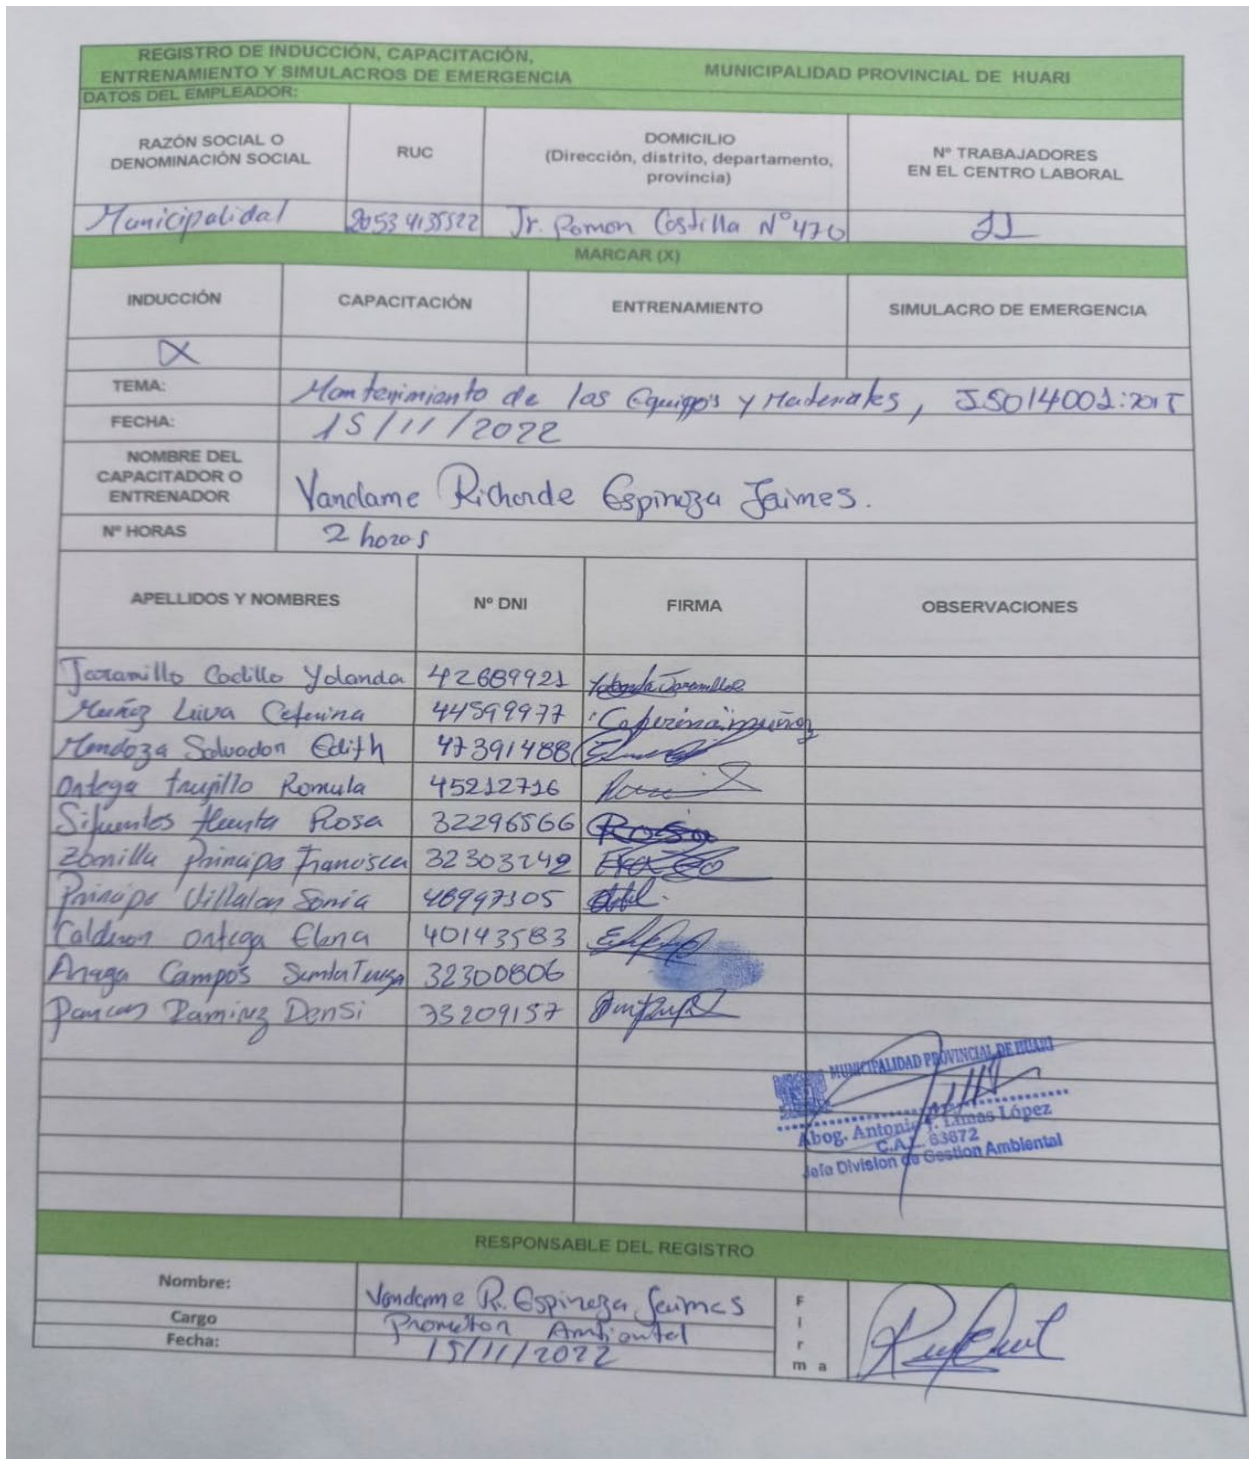 REGISTRO DE INDUCCIÓN, CAPACITACIÓN,
ENTRENAMIENTO Y SIMULACROS DE EMERGENCIA
MUNICIPALIDAD PROVINCIAL DE HUARI
DATOS DEL EMPLEADOR:
RAZÓN SOCIAL O
DENOMINACIÓN SOCIAL
RUC
DOMICILIO
(Dirección, distrito, departamento,
provincia)
Nº TRABAJADORES
EN EL CENTRO LABORAL
Municipalidad 20534135522 Jr. Ramon Castilla Nº 470 11
MARCAR (X)
INDUCCIÓN CAPACITACIÓN ENTRENAMIENTO SIMULACRO DE EMERGENCIA
X
TEMA: Mantenimiento de los Equipos y Materiales, ISO14001:2015
FECHA: 15/11/2022
NOMBRE DEL
CAPACITADOR O
ENTRENADOR
Vandame Richarde Espinoza Jaimes.
Nº HORAS 2 horas
APELLIDOS Y NOMBRES Nº DNI FIRMA OBSERVACIONES
Jaramillo Cadillo Yolanda 42689921 Yolanda Jaramillo
Muñoz Leiva Ceferina 44599977 Ceferina muñoz
Mendoza Salvador Edith 47391488
Ortega Trujillo Romula 45212716
Sifuentes Huerta Rosa 32296566 Rosa
Zorrilla Principe Francisca 32303242
Principe Villalon Sonia 46997305
Calderon Ortega Elena 40143583
Campos 32300806
Ramirez Densi 73209157
MUNICIPALIDAD PROVINCIAL DE HUARI
Abog. Antonio J. Limas López
C.A.L. 63672
Jefe Division de Gestion Ambiental
RESPONSABLE DEL REGISTRO
Nombre: Vandame R. Espinoza Jaimes
Cargo Promotor Ambiental
Fecha: 15/11/2022
F
i
r
m a